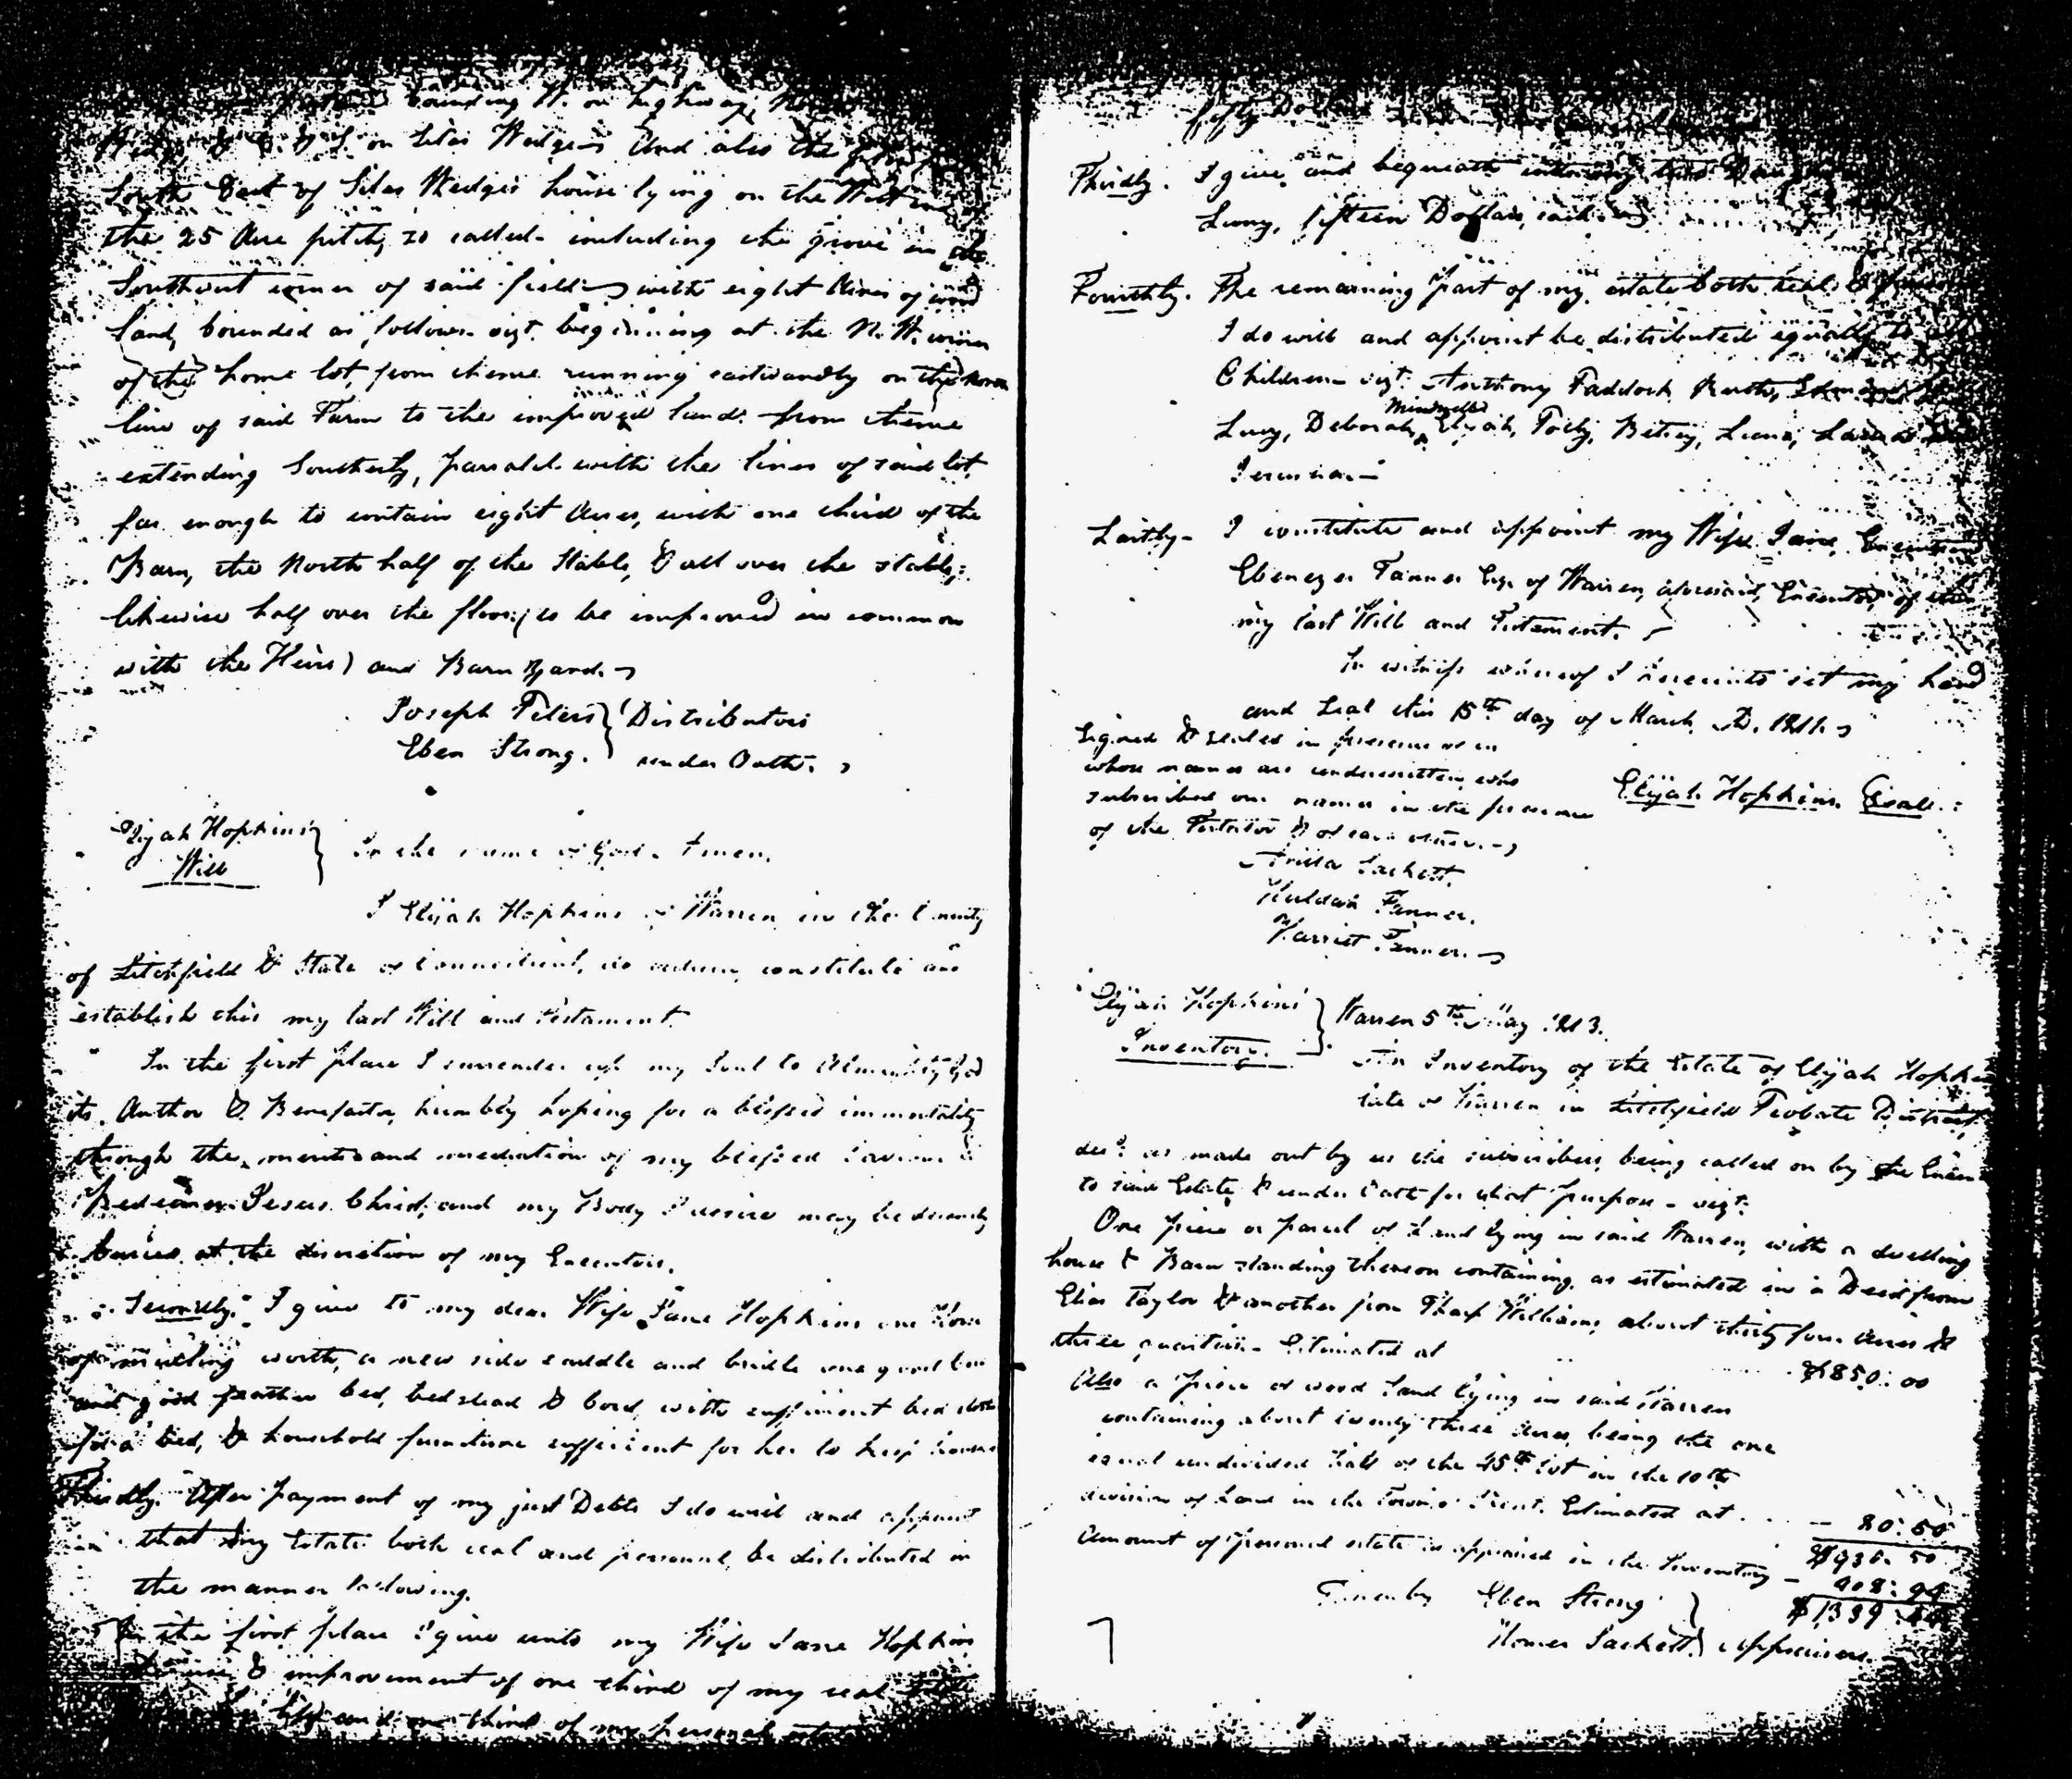 bounding W. on highway,
on Silas Wedges And also the
South East of Silas Wedges house lying on the West
the 25 Acre pitch, so called including the grove in the
Southwest corner of said field with eight Acres of wood
land, bounded as follows vizt. beginning at the N. W. corner
of the home lot, from thence running eastwardly on the North
line of said Farm to the improved land from thence
extending Southerly, parralel with the lines of said lot,
far enough to contain eight Acres, with one third of the
Barn, the North half of the Stable, & all over the stable;
likewise half over the floor; (to be improved in common
with the Heirs) and Barn Yard.
Joseph Peters } Distributors
Eben Strong. } under Oath.
Elijah Hopkins'
Will }
In the name of God. Amen.
I Elijah Hopkins of Warren in the County
of Litchfield & State of Connecticut, do ordain, constitute and
establish this my last Will and Testament.
In the first place I surrender up my Soul to Almighty God
its Author & Benefactor, humbly hoping for a blessed immortality
through the merits and mediation of my blessed Saviour &
Redeemer Jesus Christ; and my Body I desire may be decently
buried at the discretion of my Executors.
Secondly. I give to my dear Wife Jane Hopkins one
worth, a new side saddle and bridle one good
and good feather bed, bedstead & cord, with sufficient bed
for a bed, & household furniture sufficient for her to keep house
Thirdly. After payment of my just Debts I do will and appoint
that my Estate both real and personal, be distributed in
the manner following.
In the first place I give unto my Wife Jane Hopkins
& improvement of one third of my real
life and one third of my personal
fifty Dollars
Thirdly. I give and bequeath
Luny, fifteen Dollars, each
Fourthly. The remaining part of my estate both real &
I do will and appoint be distributed equally to
Children vizt. Anthony Paddock, Ruth,
Mindwell
Lucy, Deborah, Elijah, Polly, Betsey,
Jerusha.
Lastly I constitute and appoint my Wife Jane,
Ebenezer Tanner Esqr. of Warren, aforesaid, Executors of this
my last Will and Testament.
In witness whereof I hereunto set my hand
and Seal this 15th day of March, A.D. 1811.
Signed & sealed in presence of us
whose names are underwritten, who
subscribed our names in the presence
of the Testator & of each other.
Elijah Hopkins. Seal.
Sackett.
Huldah Tanner.
Harriet Tanner.
Elijah Hopkins'
Inventory. }
Warren 5th May 1813.
An Inventory of the Estate of Elijah Hopkins
late of Warren in Litchfield Probate District,
decd. as made out by us the subscribers, being called on by the
to said Estate, & under Oath for that purpose vizt.
One piece or parcel of Land lying in said Warren, with a dwelling
house & Barn standing thereon containing, as estimated in a Deed from
Elias Taylor & another from Williams, about thirty four Acres &
three quarters Estimated at
$850:00
Also a piece of wood Land lying in said Warren
containing about twenty three Acres, being the one
equal undivided half of the 45th lot in the 10th
division of Land in the Town of Kent. Estimated at
80:50
$930:50
Amount of personal estate as apprised in the Inventory
408:94
$1339:44
Eben Strong }
Homer Sackett } Apprisers.